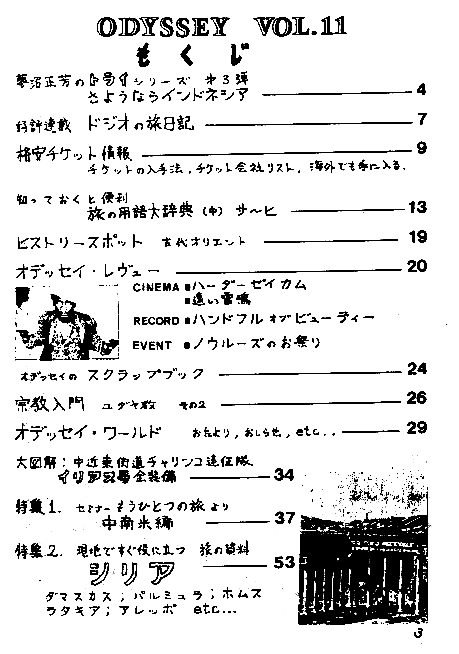 ODYSSEY VOL.11
もくじ
夢沼正芳の トライシリーズ 第3弾
さようならインドネシア 4
好評連載 ドジオの旅日記 7
格安チケット情報 9
チケットの入手法，チケット会社リスト，海外でも手に入る．
知っておくと便利
旅の用語大辞典（中） サ〜ヒ 13
ヒストリースポット 古代オリエント 19
オデッセイ・レヴュー 20
CINEMA ■ハーダーゼイカム
■遠い雷鳴
RECORD ■ハンドフル オブ ビューティー
EVENT ■ノウルーズのお祭り
オデッセイの スクラップブック 24
宗教入門 ユダヤ教 その2 26
オデッセイ・ワールド おたより，おしらせ，etc.. 29
大図解：中近東街道チャリンコ遠征隊
全装備 34
特集1. セミナーもうひとつの旅より
中南米編 37
特集2. 現地ですぐ役に立つ 旅の資料
シリア 53
ダマスカス；パルミュラ；ホムス
ラタキア；アレッポ etc...
3